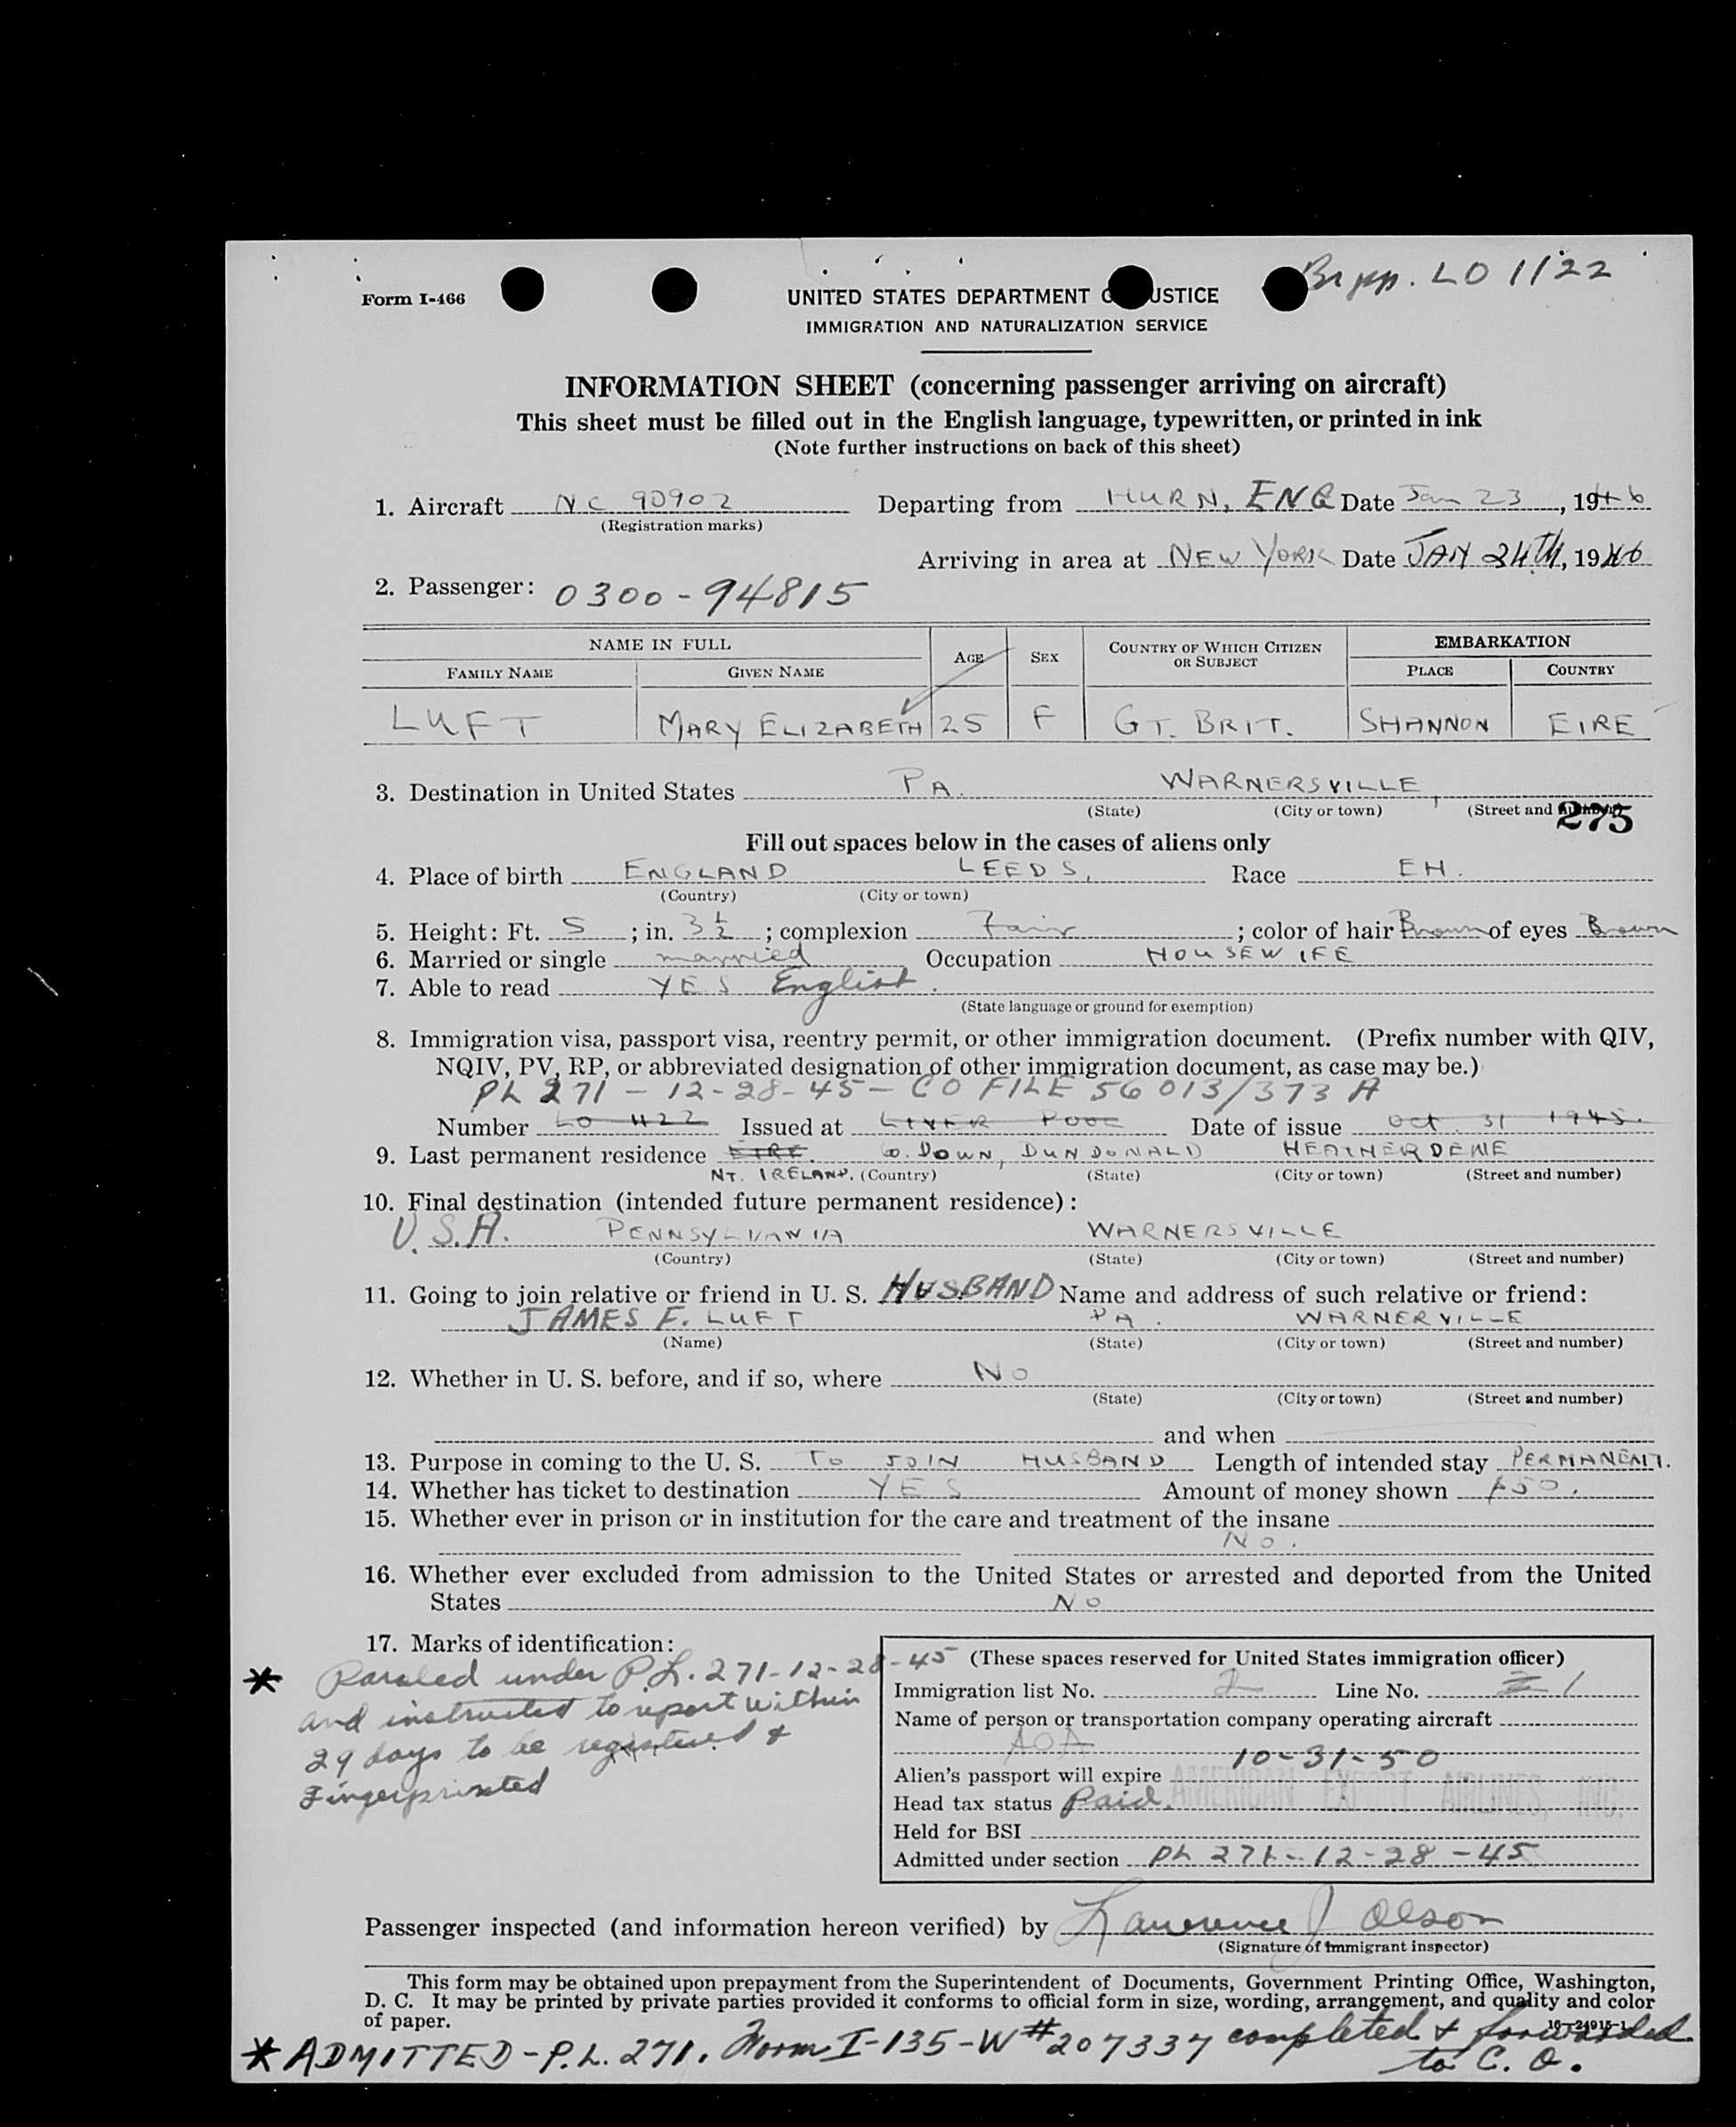 Br pp. LO 1122
Form I-466
UNITED STATES DEPARTMENT O USTICE
IMMIGRATION AND NATURALIZATION SERVICE
INFORMATION SHEET (concerning passenger arriving on aircraft)
This sheet must be filled out in the English language, typewritten, or printed in ink
(Note further instructions on back of this sheet)
1. Aircraft NC 90902 Departing from HURN, ENG Date Jan 23, 1946
(Registration marks)
Arriving in area at NEW YORK Date JAN 24th, 1946
2. Passenger: 0300-94815
NAME IN FULL AGE SEX COUNTRY OF WHICH CITIZEN OR SUBJECT EMBARKATION
FAMILY NAME GIVEN NAME PLACE COUNTRY
LUFT MARY ELIZABETH 25 F GT. BRIT. SHANNON EIRE
3. Destination in United States PA. WARNERSVILLE,
(State) (City or town) (Street and number)
275
Fill out spaces below in the cases of aliens only
4. Place of birth ENGLAND LEEDS, Race EH.
(Country) (City or town)
5. Height: Ft. 5; in. 3½; complexion Fair; color of hair Brown of eyes Brown
6. Married or single married Occupation HOUSEWIFE
7. Able to read YES English.
(State language or ground for exemption)
8. Immigration visa, passport visa, reentry permit, or other immigration document. (Prefix number with QIV,
NQIV, PV, RP, or abbreviated designation of other immigration document, as case may be.)
PL 271 - 12-28-45 - CO FILE 56013/373 A
Number LO 1122 Issued at LIVERPOOL Date of issue Oct. 31 1945.
9. Last permanent residence EIRE. CO. DOWN, DUNDONALD HEATHERDENE
NT. IRELAND. (Country) (State) (City or town) (Street and number)
10. Final destination (intended future permanent residence):
U.S.A. PENNSYLVANIA WARNERSVILLE
(Country) (State) (City or town) (Street and number)
11. Going to join relative or friend in U. S. HUSBAND Name and address of such relative or friend:
JAMES F. LUFT PA. WARNERVILLE
(Name) (State) (City or town) (Street and number)
12. Whether in U. S. before, and if so, where NO
(State) (City or town) (Street and number)
and when
13. Purpose in coming to the U. S. TO JOIN HUSBAND Length of intended stay PERMANENT.
14. Whether has ticket to destination YES Amount of money shown $50.
15. Whether ever in prison or in institution for the care and treatment of the insane
NO.
16. Whether ever excluded from admission to the United States or arrested and deported from the United
States NO
17. Marks of identification:
* Paroled under P.L. 271-12-28-45
and instructed to report within
29 days to be registered &
Fingerprinted
(These spaces reserved for United States immigration officer)
Immigration list No. 2 Line No. 1
Name of person or transportation company operating aircraft
AOA
Alien's passport will expire 10-31-50
AMERICAN EXPORT AIRLINES, INC.
Head tax status Paid.
Held for BSI
Admitted under section PL 271-12-28-45
Passenger inspected (and information hereon verified) by Lawrence J Olson
(Signature of immigrant inspector)
This form may be obtained upon prepayment from the Superintendent of Documents, Government Printing Office, Washington,
D. C. It may be printed by private parties provided it conforms to official form in size, wording, arrangement, and quality and color
of paper. 16-24915-1
* ADMITTED-P.L. 271. Form I-135-W #207337 completed & forwarded
to C. O.